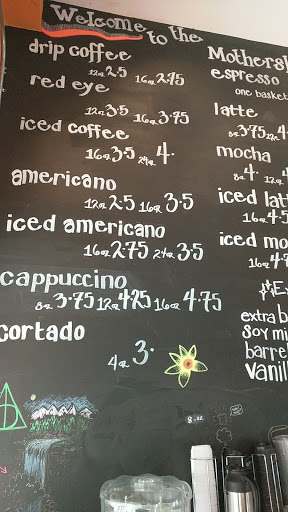 Welcome to the
Mothersh
drip coffee
12oz 2.5 16oz 2.75
red eye
12oz 3.5 16oz 3.75
iced coffee
16oz 3.5 24oz 4.
americano
12oz 2.5 16oz 3.5
iced americano
16oz 2.75 24oz 3.5
cappuccino
8oz 3.75 12oz 4.25 16oz 4.75
cortado
4oz 3.
espresso
one basket
latte
8oz 3.75 12oz 4
mocha
8oz 4. 12oz
iced latt
16oz 4.5
iced mo
16oz 4.7
extra b
soy mi
barre
vanill
8 oz